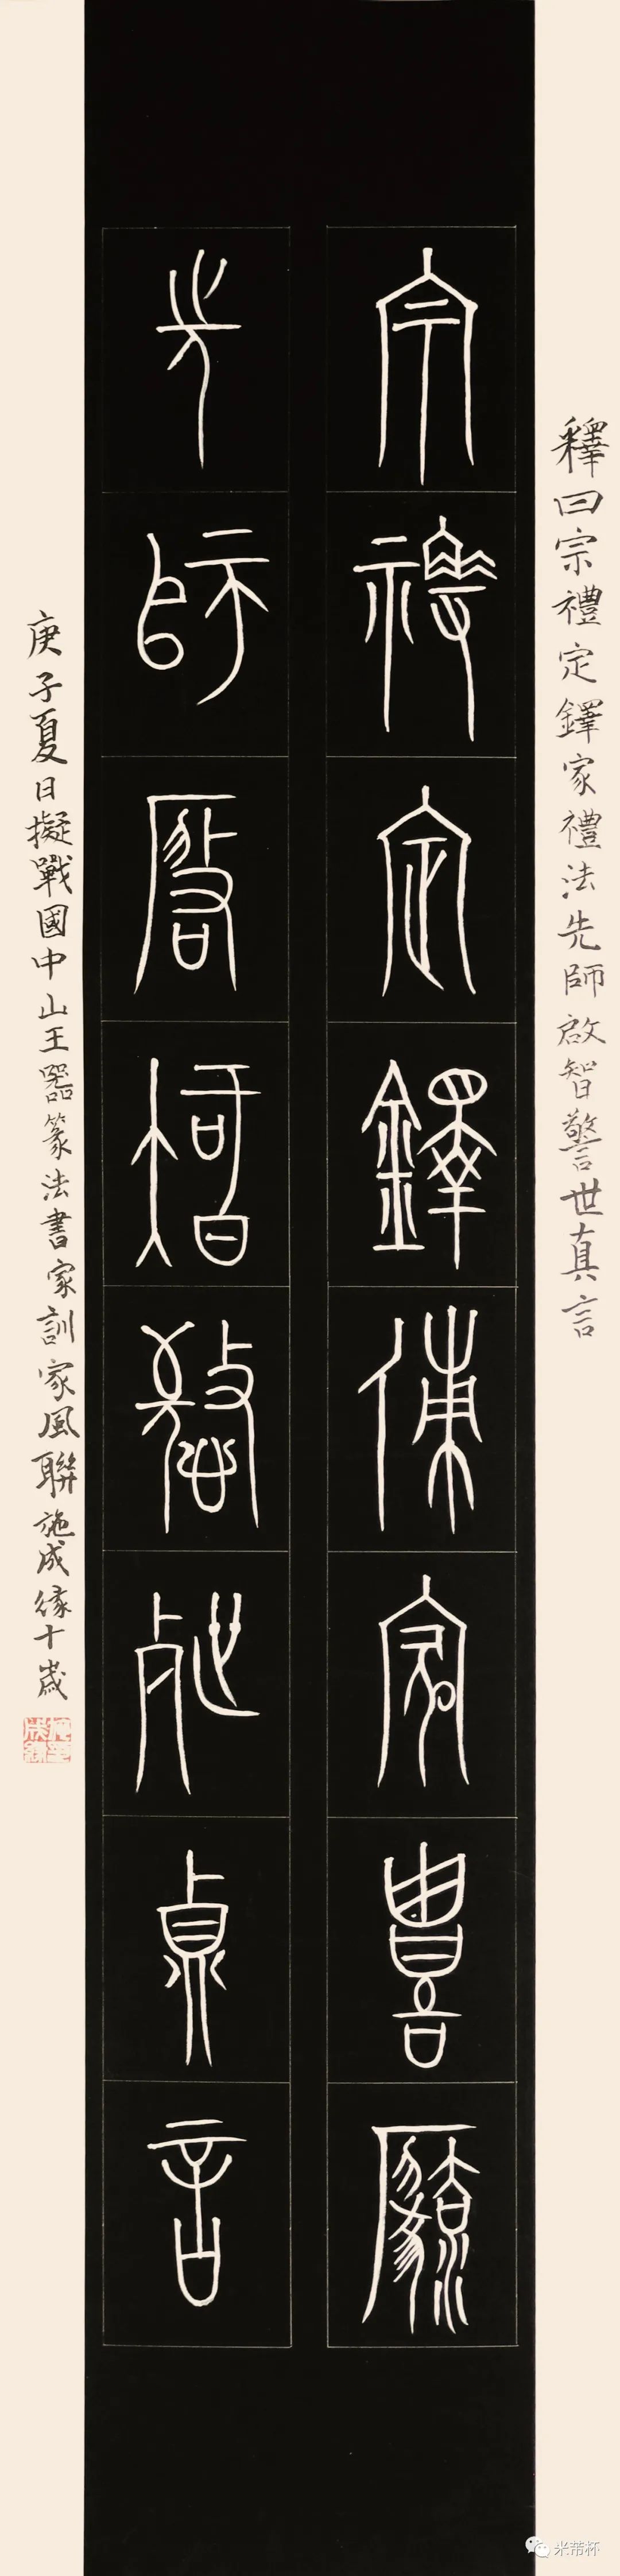 釋曰宗禮定鐸家禮法先師啟智警世真言
宗禮定鐸傳家禮法
先師啟智警世真言
庚子夏日擬戰國中山王器篆法書家訓家風聯施成緣十歲
米芾杯